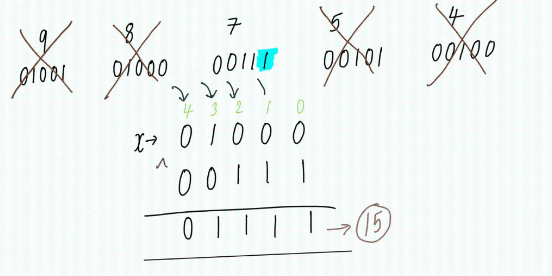 9 8 7 5 4
01001 01000 00111 00101 00100
4 3 2 1 0
x→ 0 1 0 0 0
^ 0 0 1 1 1
0 1 1 1 1 → 15